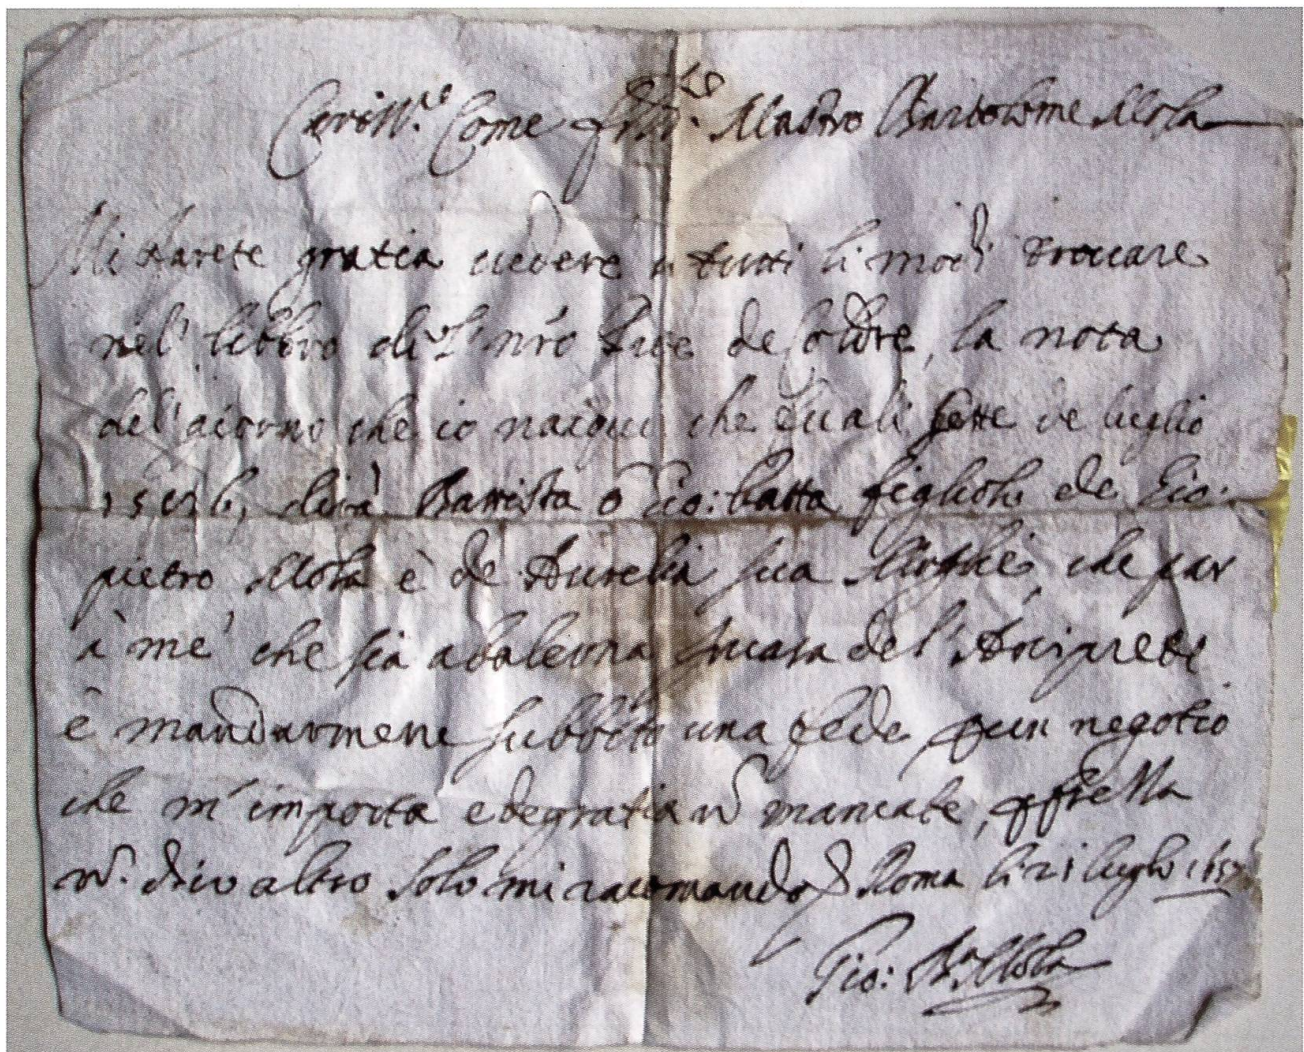 Cariss.mo Come fr̃llo Mastro Bartolome Mola
Mi farete gratia vedere in tutti li modi trovare
nel' libbro di S. nr̃o de Coldrè, la nota
del' giorno che io nacqui che fu ali sette de luglio
dirà Battista ò Gio: batta figliolo de Gio:
pietro Mola è de Aurelia sua Moglie, che par
à me' che sia in casa del' Arciprete
è mandarmene subbito una fede p un negotio
che m'importa e de gratia nõ mancate, p fretta
nõ. dico altro solo mi racomando Roma li 21 luglio
Gio: Bã Mola